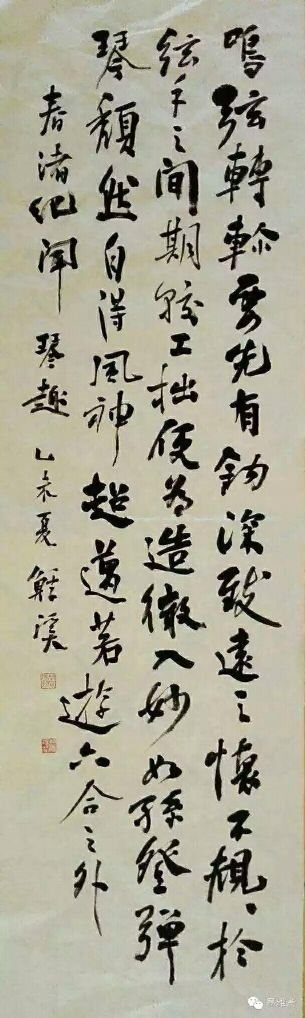 鳴弦轉軫要先有鈎深致遠之懷不規々於
弦手之間期較工拙便為造微入妙如孫登彈
琴頹然自得風神超邁若遊六合之外
春渚紀聞 琴趣 乙未夏